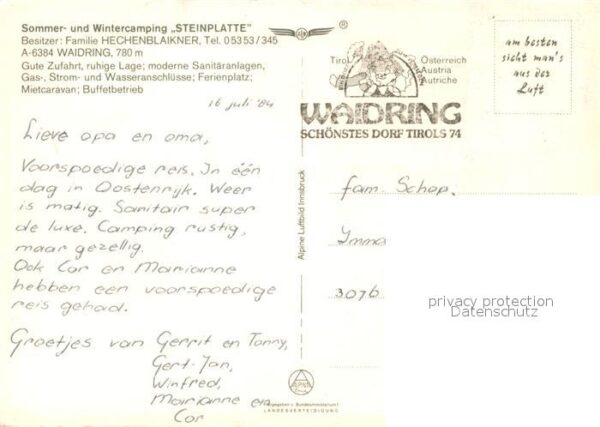 Sommer- und Wintercamping „STEINPLATTE"
Besitzer: Familie HECHENBLAIKNER, Tel. 0 53 53 / 345
A-6384 WAIDRING, 780 m
Gute Zufahrt, ruhige Lage; moderne Sanitäranlagen,
Gas-, Strom- und Wasseranschlüsse; Ferienplatz;
Mietcaravan; Buffetbetrieb
16 juli '84
Lieve opa en oma,
Voorspoedige reis. In één
dag in Oostenrijk. Weer
is matig. Sanitair super
de luxe. Camping rustig,
maar gezellig.
Ook Cor en Marianne
hebben een voorspoedige
reis gehad.
Groetjes van Gerrit en Tonny,
Gert-Jan,
Winfred,
Marianne en
Cor
®
Tirol
Österreich
Austria
Autriche
WAIDRING
SCHÖNSTES DORF TIROLS 74
am besten
sieht man's
aus der
Luft
Alpine Luftbild Innsbruck
fam. Schop.
Imma
3076
privacy protection
Datenschutz
LANDESVERTEIDIGUNG